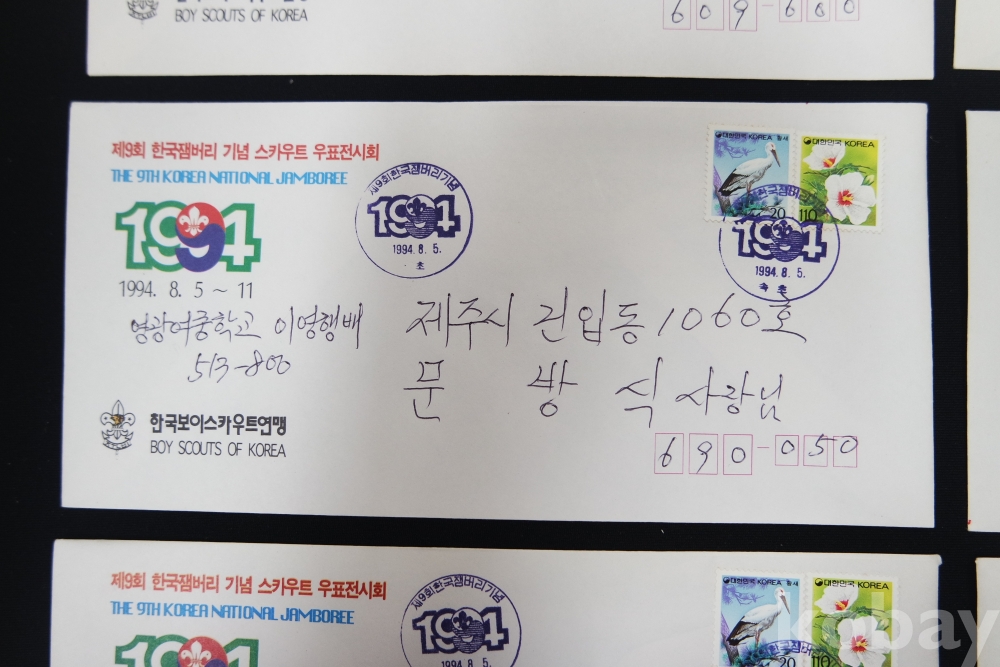 BOY SCOUTS OF KOREA
609-600
제9회 한국잼버리 기념 스카우트 우표전시회
THE 9TH KOREA NATIONAL JAMBOREE
1994
1994. 8. 5 ~ 11
영광여중학교 이영행배
513-800
한국보이스카우트연맹
BOY SCOUTS OF KOREA
제9회한국잼버리기념
1994
1994. 8. 5.
초
대한민국 KOREA 황새
20
대한민국 KOREA
110
한국잼버리
1994
1994. 8. 5.
속 초
제주시 건입동 1060호
문 방 식 사랑님
690-050
제9회 한국잼버리 기념 스카우트 우표전시회
THE 9TH KOREA NATIONAL JAMBOREE
1994
제9회한국잼버리기념
1994
1994. 8. 5.
대한민국 KOREA 황새
20
대한민국 KOREA
110
kobay